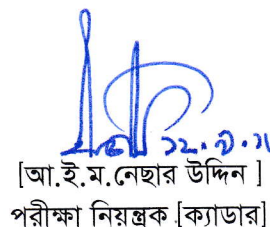 [আ.ই.ম.নেছার উদ্দিন ]
পরীক্ষা নিয়ন্ত্রক [ক্যাডার]